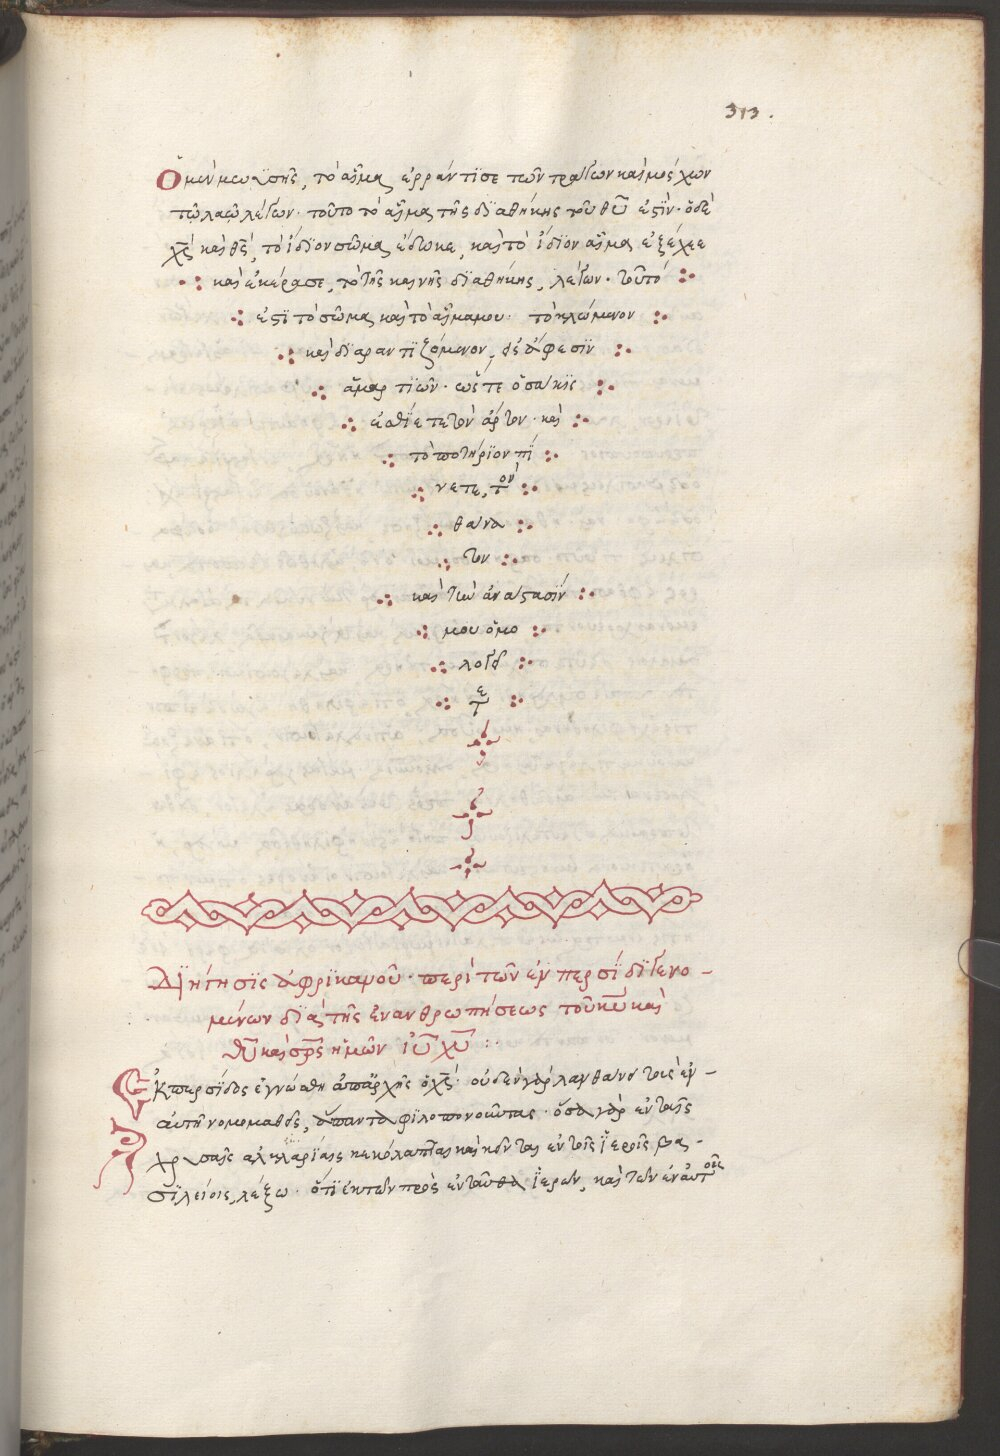 313.
Ὁ μὲν μωϋσῆς, τὸ αἷμα ἐρράντϊσε τῶν τράγων καὶ μόσχων
τῷ λαῷ λέγων· τοῦτο τὸ αἷμα τῆς δϊαθήκης τοῦ θῦ ἐστϊν· ὁ δὲ
χς καὶ θς, τὸ ἴδϊον σῶμα ἔδωκε, καὶ τὸ ἴδϊον αἷμα ἐξέχεε
καὶ ἐκέρασε, τὸ τῆς καινῆς δϊαθήκης, λέγων· τοῦτό
ἐστϊ τὸ σῶμα καὶ τὸ αἷμα μου· τὸ κλώμενον
καὶ δϊαραντϊζόμενον, εἰς ἄφεσϊν
ἁμαρτϊῶν· ὥστε ὁσάκϊς
ἐσθίετε τὸν ἄρτον· καὶ
τὸ ποτήρϊον πί
νετε, τὸν
θάνα
τον
καὶ τὴν ἀνάστασϊν
μου ὁμο
λογεῖ
τε
Δϊήγησϊς ἀφρϊκανοῦ· περὶ τῶν ἐν περσίδϊ γενο-
μένων δϊὰ τῆς ἐνανθρωπήσεως τοῦ κυ καὶ
θυ καὶ σρς ἡμῶν ιυ χυ :·
Ἐκ περσίδος ἐγνώσθη ἀπαρχῆς ὁ χς· οὐδὲν γὰρ λανθάνει τοὺς ἐν-
αὐτῇ νομομαθεῖς, ἅπαντα φϊλοπονοῦντας· ὅσα γὰρ ἐν ταῖς
χρυσαῖς ἀλκλαρίαις κεκόλαπται καὶ κεῖνται ἐν τοῖς ϊεροῖς βα-
σϊλείοις, λέξω· ὅτϊ ἐκ τῶν πρὸς ἐνταῦθα ϊερῶν, καὶ τῶν ἐν αὐτοῖς